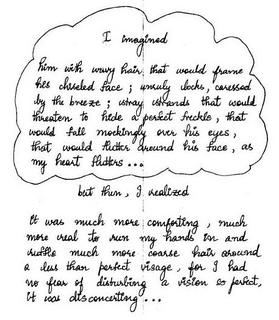 I imagined
him with wavy hair that would frame
his chiseled face ; unruly locks, caressed
by the breeze ; stray strands that would
threaten to hide a perfect freckle, that
would fall mockingly over his eyes,
that would flutter around his face, as
my heart flutters ...
but then, I realized
It was much more comforting, much
more real to run my hands in and
ruffle much more coarse hair around
a less than perfect visage, for I had
no fear of disturbing a vision so perfect,
it was disconcerting ...